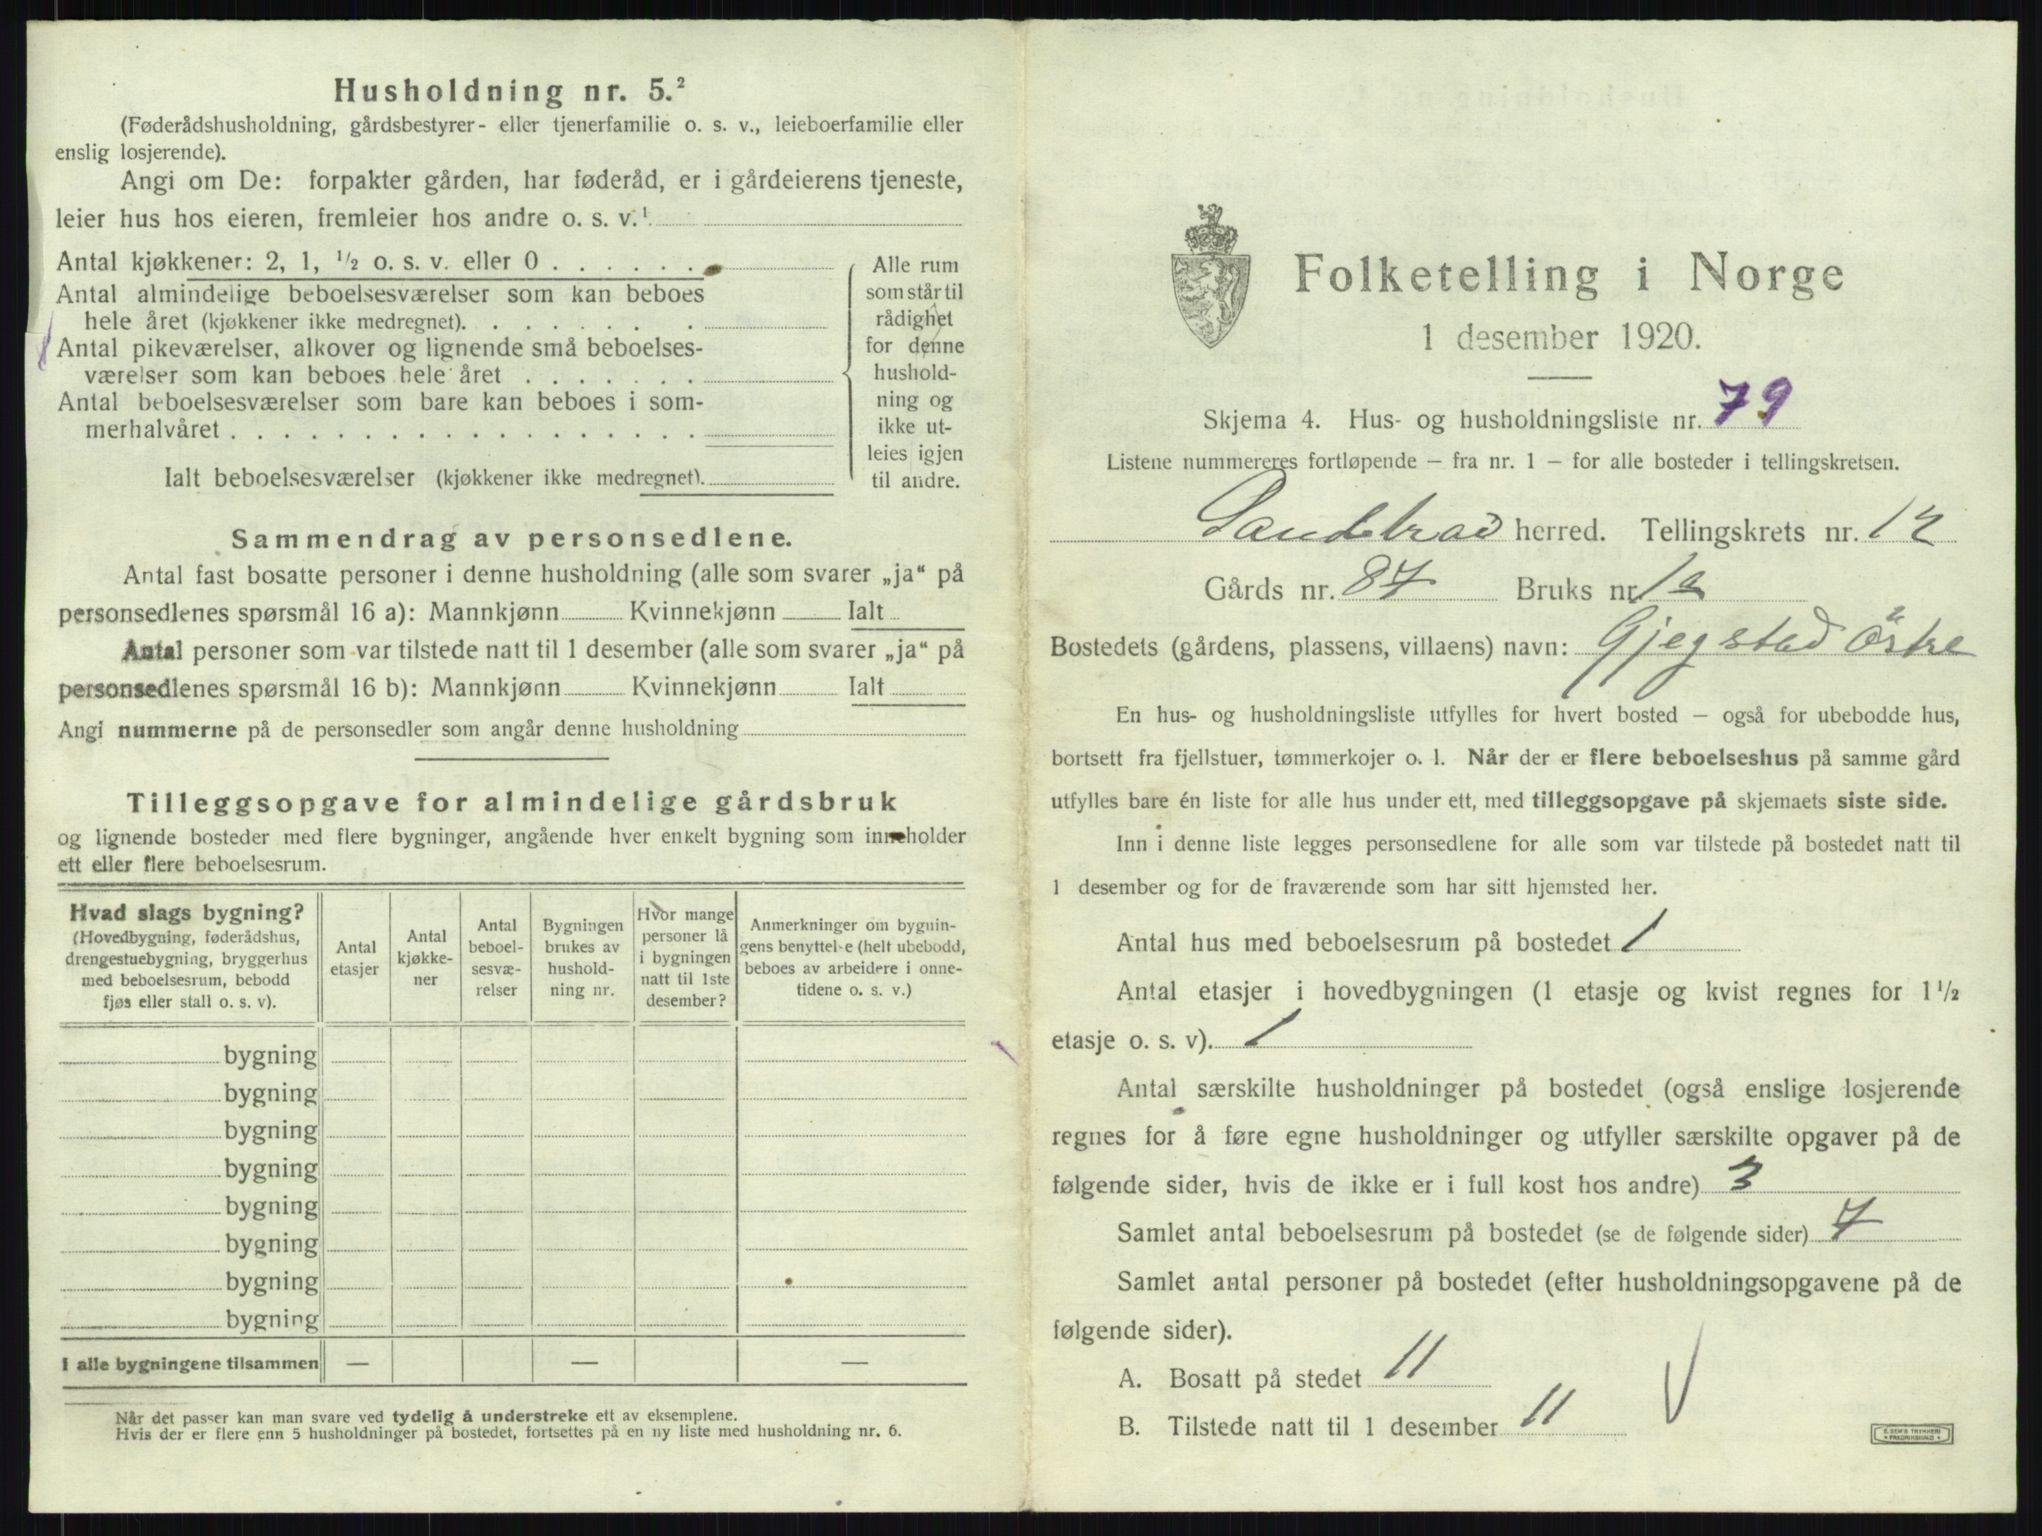 Husholdning nr. 5.²
(Føderådshusholdning, gårdsbestyrer- eller tjenerfamilie o. s. v., leieboerfamilie eller
enslig losjerende).
Angi om De: forpakter gården, har føderåd, er i gårdeierens tjeneste,
leier hus hos eieren, fremleier hos andre o. s. v.¹
Antal kjøkkener: 2, 1, ½ o. s. v. eller 0 . . . . . .
Antal almindelige beboelsesværelser som kan beboes
hele året (kjøkkener ikke medregnet). . . . . . . .
Antal pikeværelser, alkover og lignende små beboelses-
værelser som kan beboes hele året . . . . . . .
Antal beboelsesværelser som bare kan beboes i som-
merhalvåret . . . . . . . . . . . . . . . . . .
Ialt beboelsesværelser (kjøkkener ikke medregnet).
Alle rum
som står til
rådighet
for denne
hushold-
ning og
ikke ut-
leies igjen
til andre.
Sammendrag av personsedlene.
Antal fast bosatte personer i denne husholdning (alle som svarer „ja“ på
personsedlenes spørsmål 16 a): Mannkjønn Kvinnekjønn Ialt
Antal personer som var tilstede natt til 1 desember (alle som svarer „ja“ på
personsedlenes spørsmål 16 b): Mannkjønn Kvinnekjønn Ialt
Angi nummerne på de personsedler som angår denne husholdning
Tilleggsopgave for almindelige gårdsbruk
og lignende bosteder med flere bygninger, angående hver enkelt bygning som inneholder
ett eller flere beboelsesrum.
Hvad slags bygning?
(Hovedbygning, føderådshus,
drengestuebygning, bryggerhus
med beboelsesrum, bebodd
fjøs eller stall o. s. v).
Antal
etasjer
Antal
kjøkke-
ner
Antal
beboel-
sesvæ-
relser
Bygningen
brukes av
hushold-
ning nr.
Hvor mange
personer lå
i bygningen
natt til 1ste
desember?
Anmerkninger om bygnin-
gens benyttelse (helt ubebodd,
beboes av arbeidere i onne-
tidene o. s. v.)
bygning
bygning
bygning
bygning
bygning
bygning
bygning
bygning
I alle bygningene tilsammen — — —
Når det passer kan man svare ved tydelig å understreke ett av eksemplene.
Hvis der er flere enn 5 husholdninger på bostedet, fortsettes på en ny liste med husholdning nr. 6.
Folketelling i Norge
1 desember 1920.
Skjema 4. Hus- og husholdningsliste nr. 79
Listene nummereres fortløpende – fra nr. 1 – for alle bosteder i tellingskretsen.
herred. Tellingskrets nr. 12
Gårds nr. 87 Bruks nr.
Bostedets (gårdens, plassens, villaens) navn: Gjegstad Østre
En hus- og husholdningsliste utfylles for hvert bosted – også for ubebodde hus,
bortsett fra fjellstuer, tømmerkojer o. l. Når der er flere beboelseshus på samme gård
utfylles bare én liste for alle hus under ett, med tilleggsopgave på skjemaets siste side.
Inn i denne liste legges personsedlene for alle som var tilstede på bostedet natt til
1 desember og for de fraværende som har sitt hjemsted her.
Antal hus med beboelsesrum på bostedet 1
Antal etasjer i hovedbygningen (1 etasje og kvist regnes for 1½
etasje o. s. v). 1
Antal særskilte husholdninger på bostedet (også enslige losjerende
regnes for å føre egne husholdninger og utfyller særskilte opgaver på de
følgende sider, hvis de ikke er i full kost hos andre) 3
Samlet antal beboelsesrum på bostedet (se de følgende sider) 7
Samlet antal personer på bostedet (efter husholdningsopgavene på de
følgende sider).
A. Bosatt på stedet 11
B. Tilstede natt til 1 desember 11